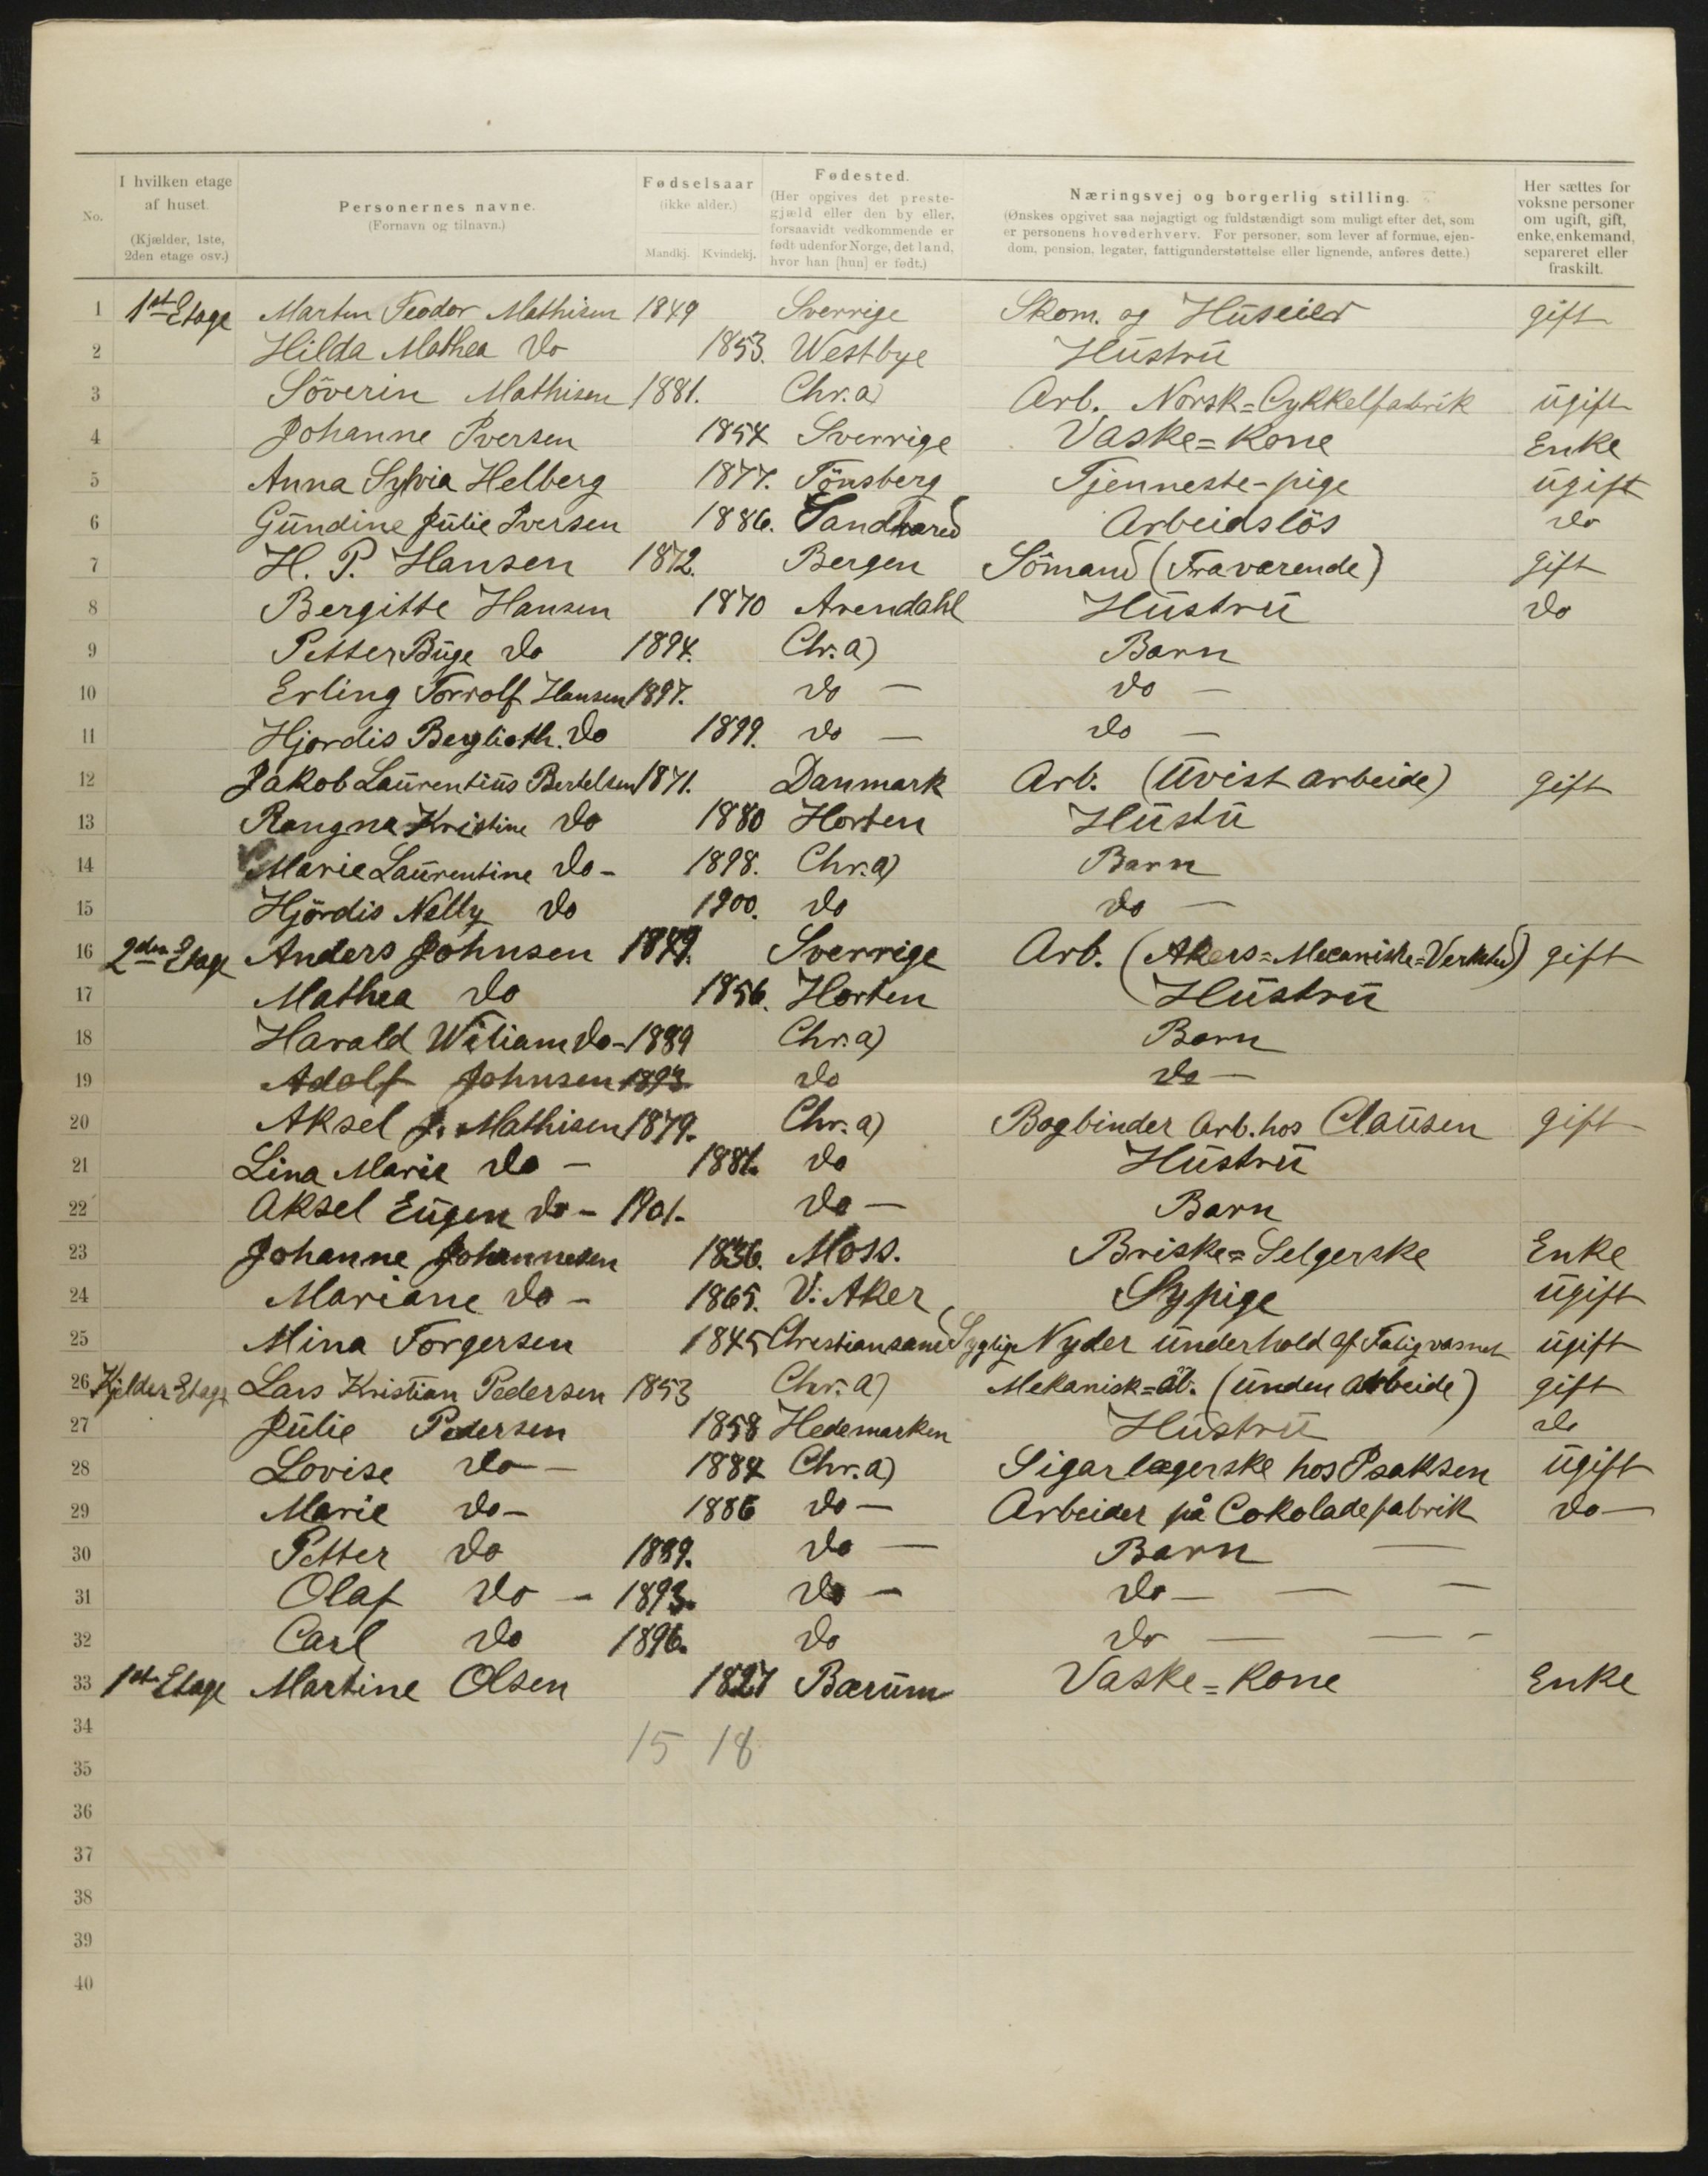 No.
I hvilken etage
af huset.
(Kjælder, 1ste,
2den etage osv.)
Personernes navne.
(Fornavn og tilnavn.)
Fødselsaar
(ikke alder.)
Mandkj. Kvindekj.
Fødested.
(Her opgives det preste-
gjæld eller den by eller,
forsaavidt vedkommende er
født udenfor Norge, det land,
hvor han [hun] er født.)
Næringsvej og borgerlig stilling.
(Ønskes opgivet saa nøjagtigt og fuldstændigt som muligt efter det, som
er personens hovederhverv. For personer, som lever af formue, ejen-
dom, pension, legater, fattigunderstøttelse eller lignende, anføres dette.)
Her sættes for
voksne personer
om ugift, gift,
enke, enkemand,
separeret eller
fraskilt.
1 1st Etage Martin Teodor Mathisen 1849 Sverrige Skom. og Huseier gift
2 Hilda Mathea Do 1853. Westbye Hustru
3 Söverin Mathisen 1881. Chr.a) Arb. Norsk=Cykkelfabrik ugift
4 Johanne Iversen 1854 Sverrige Vaske=Kone Enke
5 Anna Sylvia Helberg 1877. Tönsberg Tjenneste-pige ugift
6 Gundine Julie Iversen 1886. Sandhared Arbeidslös Do
7 H. P. Hansen 1872. Bergen Sömand (Fraværende) gift
8 Bergitte Hansen 1870 Arendahl Hustru Do
9 Petter Buge Do 1894. Chr.a) Barn
10 Erling Torrolf Hansen 1897. Do — Do —
11 Hjordis Berglioth. Do 1899. Do — Do —
12 Jakob Laurentius Bertelsen 1871. Danmark Arb. (Uvist arbeide) gift
13 Rangna Kristine Do 1880 Horten Hustu
14 Marie Laurentine Do - 1898. Chr.a) Barn
15 Hjördis Nelly Do 1900. Do Do —
16 2den Etage Anders Johnsen 1849. Sverrige Arb. (Akers=Mecaniske=Verksted) gift
17 Mathea Do 1856. Horten Hustru
18 Harald Wiliam Do - 1889 Chr.a) Barn
19 Adolf Johnsen 1893. Do Do —
20 Aksel J. Mathisen 1879. Chr.a) Bogbinder Arb. hos Clausen gift
21 Lina Marie Do — 1881. Do Hustru
22 Aksel Eugen Do - 1901. Do — Barn
23 Johanne Johannesen 1836. Moss. Briske=Selgerske Enke
24 Mariane Do - 1865. V. Aker Sypige ugift
25 Mina Torgersen 1845 Christiansand Syglig Nyder underhold af Fatigvæsnet ugift
26 Kjelder Etage Lars Kristian Pedersen 1853 Chr.a) Mekanisk= (unden arbeide) gift
27 Julie Pedersen 1858 Hedemarken Hustru Do
28 Lovise Do — 1884 Chr.a) Sigarlægerske hos Isaksen ugift
29 Marie Do - 1886 Do — Arbeider på Cokoladefabrik Do —
30 Petter Do 1889. Do — Barn —
31 Olaf Do - 1893. Do - Do — — —
32 Carl Do 1896. Do Do — — -
33 1st Etage Martine Olsen 1827 Bærum Vaske=Kone Enke
34
15 18
35
36
37
38
39
40